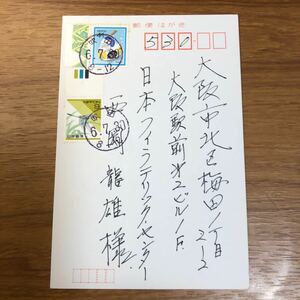 郵便はがき
530
大阪市北区梅田1丁目
2-2
大阪駅前第2ビル1F
日本フィラテリックセンター
龍雄様